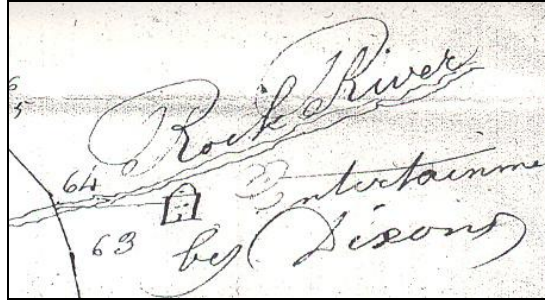 Rock River
64
Entertainme
63 by Dixons